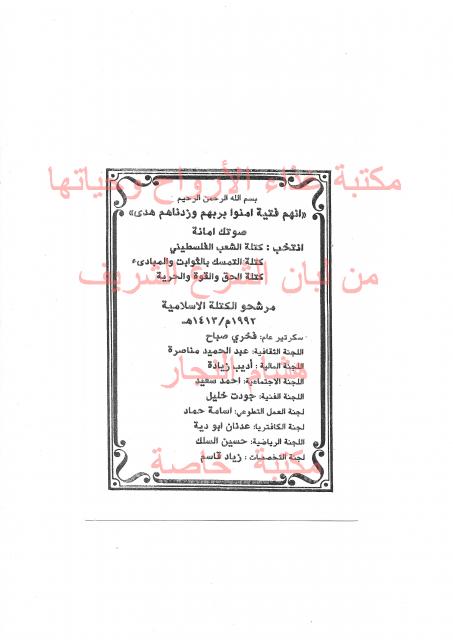 مكتبة غذاء الأرواح وحياتها
بسم الله الرحمن الرحيم
«انهم فتية امنوا بربهم وزدناهم هدى»
صوتك امانة
انتخب : كتلة الشعب الفلسطيني
كتلة التمسك بالثوابت والمبادىء
كتلة الحق والقوة والحرية
من لبان الشرع الشريف
مرشحو الكتلة الاسلامية
١٩٩٢م/١٤١٣هـ
سكرتير عام: فخري صباح
اللجنة الثقافية: عبد الحميد مناصرة
اللجنة المالية: أديب زيادة
هشام النجار
اللجنة الاجتماعية: احمد سعيد
اللجنة الفنية: جودت خليل
لجنة العمل التطوعي: اسامة حماد
لجنة الكافتريا: عدنان ابو دية
اللجنة الرياضية: حسين السلك
لجنة التخصصات : زياد قاسم
مكتبة خاصة